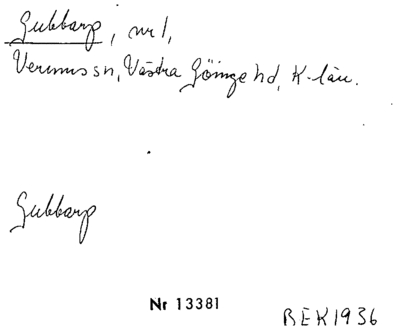 Gubbarp, nr 1,
Verums sn, Västra Göinge hd, K-län.
Gubbarp
Nr 13381
BEK1936